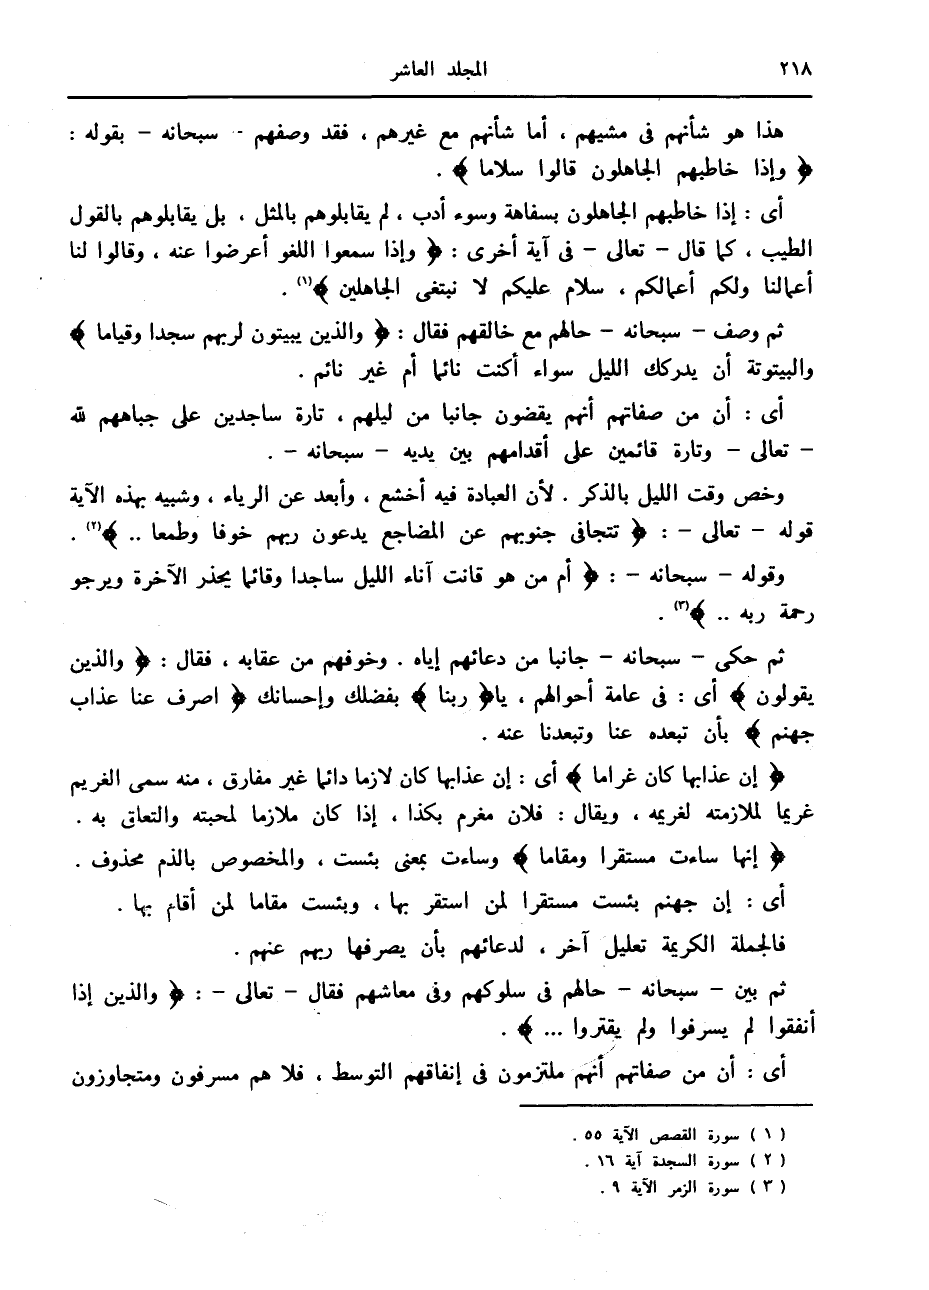 ٢١٨ المجلد العاشر
هذا هو شأنهم فى مشيهم ، أما شأنهم مع غيرهم ، فقد وصفهم - سبحانه - بقوله :
﴿ وإذا خاطبهم الجاهلون قالوا سلاما ﴾ .
أى : إذا خاطبهم الجاهلون بسفاهة وسوء أدب ، لم يقابلوهم بالمثل ، بل يقابلوهم بالقول
الطيب ، كما قال - تعالى - فى آية أخرى : ﴿ وإذا سمعوا اللغو أعرضوا عنه ، وقالوا لنا
أعمالنا ولكم أعمالكم ، سلام عليكم لا نبتغى الجاهلين ﴾(١) .
ثم وصف - سبحانه - حالهم مع خالقهم فقال : ﴿ والذين يبيتون لربهم سجدا وقياما ﴾
والبيتوتة أن يدركك الليل سواء أكنت نائما أم غير نائم .
أى : أن من صفاتهم أنهم يقضون جانبا من ليلهم ، تارة ساجدين على جباههم لله
- تعالى - وتارة قائمين على أقدامهم بين يديه - سبحانه - .
وخص وقت الليل بالذكر . لأن العبادة فيه أخشع ، وأبعد عن الرياء ، وشبيه بهذه الآية
قوله - تعالى - : ﴿ تتجافى جنوبهم عن المضاجع يدعون ربهم خوفا وطمعا .. ﴾(٢) .
وقوله - سبحانه - : ﴿ أم من هو قانت آناء الليل ساجدا وقائما يحذر الآخرة ويرجو
رحمة ربه .. ﴾(٣) .
ثم حكى - سبحانه - جانبا من دعائهم إياه . وخوفهم من عقابه ، فقال : ﴿ والذين
يقولون ﴾ أى : فى عامة أحوالهم ، يا﴿ ربنا ﴾ بفضلك وإحسانك ﴿ اصرف عنا عذاب
جهنم ﴾ بأن تبعده عنا وتبعدنا عنه .
﴿ إن عذابها كان غراما ﴾ أى : إن عذابها كان لازما دائما غير مفارق ، منه سمى الغريم
غريما لملازمته لغريمه ، ويقال : فلان مغرم بكذا ، إذا كان ملازما لمحبته والتعلق به .
﴿ إنها ساءت مستقرا ومقاما ﴾ وساءت بمعنى بئست ، والمخصوص بالذم محذوف .
أى : إن جهنم بئست مستقرا لمن استقر بها ، وبئست مقاما لمن أقام بها .
فالجملة الكريمة تعليل آخر ، لدعائهم بأن يصرفها ربهم عنهم .
ثم بين - سبحانه - حالهم فى سلوكهم وفى معاشهم فقال - تعالى - : ﴿ والذين إذا
أنفقوا لم يسرفوا ولم يقتروا ... ﴾ .
أى : أن من صفاتهم أنهم ملتزمون فى إنفاقهم التوسط ، فلا هم مسرفون ومتجاوزون
( ١ ) سورة القصص الآية ٥٥ .
( ٢ ) سورة السجدة آية ١٦ .
( ٣ ) سورة الزمر الآية ٩ .